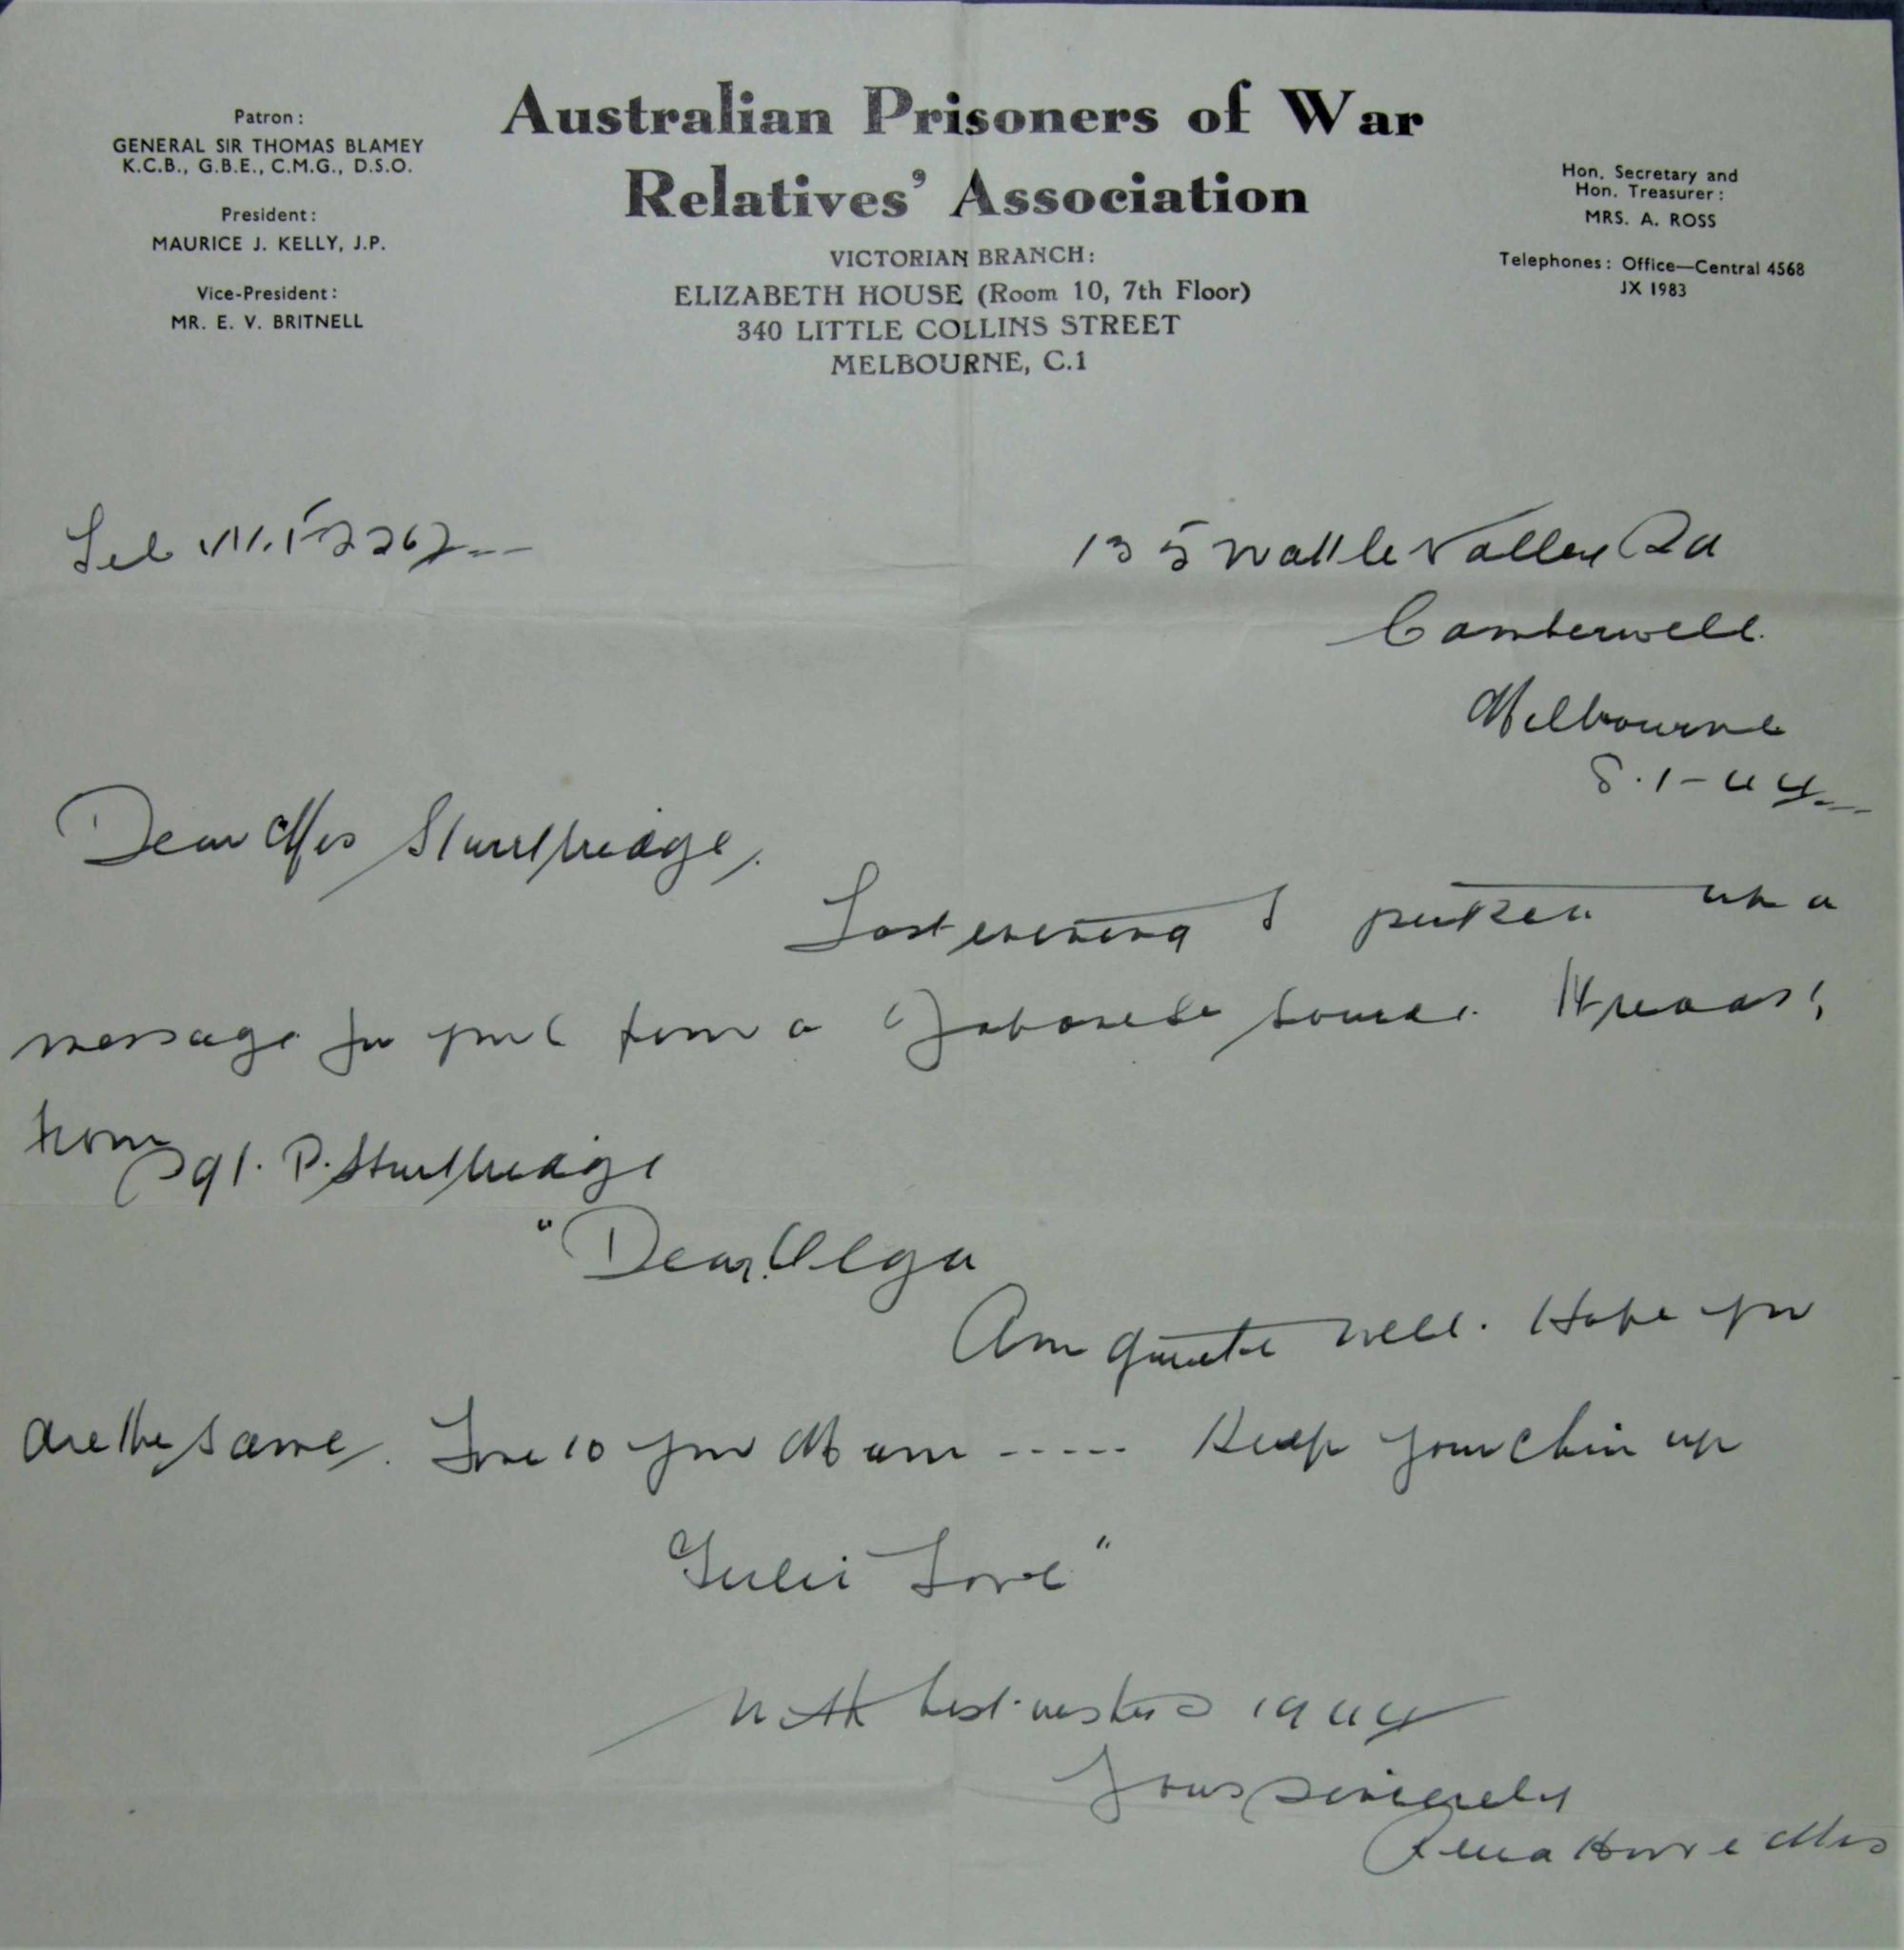 Patron:
GENERAL SIR THOMAS BLAMEY
K.C.B., G.B.E., C.M.G., D.S.O.
President:
MAURICE J. KELLY, J.P.
Vice-President:
MR. E. V. BRITNELL
Australian Prisoners of War
Relatives' Association
VICTORIAN BRANCH:
ELIZABETH HOUSE (Room 10, 7th Floor)
340 LITTLE COLLINS STREET
MELBOURNE, C.1
Hon. Secretary and
Hon. Treasurer:
MRS. A. ROSS
Telephones: Office—Central 4568
JX 1983
Tel
135 Wattle Valley Rd
Camberwell.
Melbourne
8.1-44
Dear Mrs Sturtbridge,
Last evening I picked up a
message for you from a Japanese source. It reads:
from
Sgt. P. Sturtbridge
"Dear Olga
Am quite well. Hope you
are the same. Love to you Mum ----- Keep your chin up
Love"
With best wishes 1944
Yours sincerely
Howe Mrs